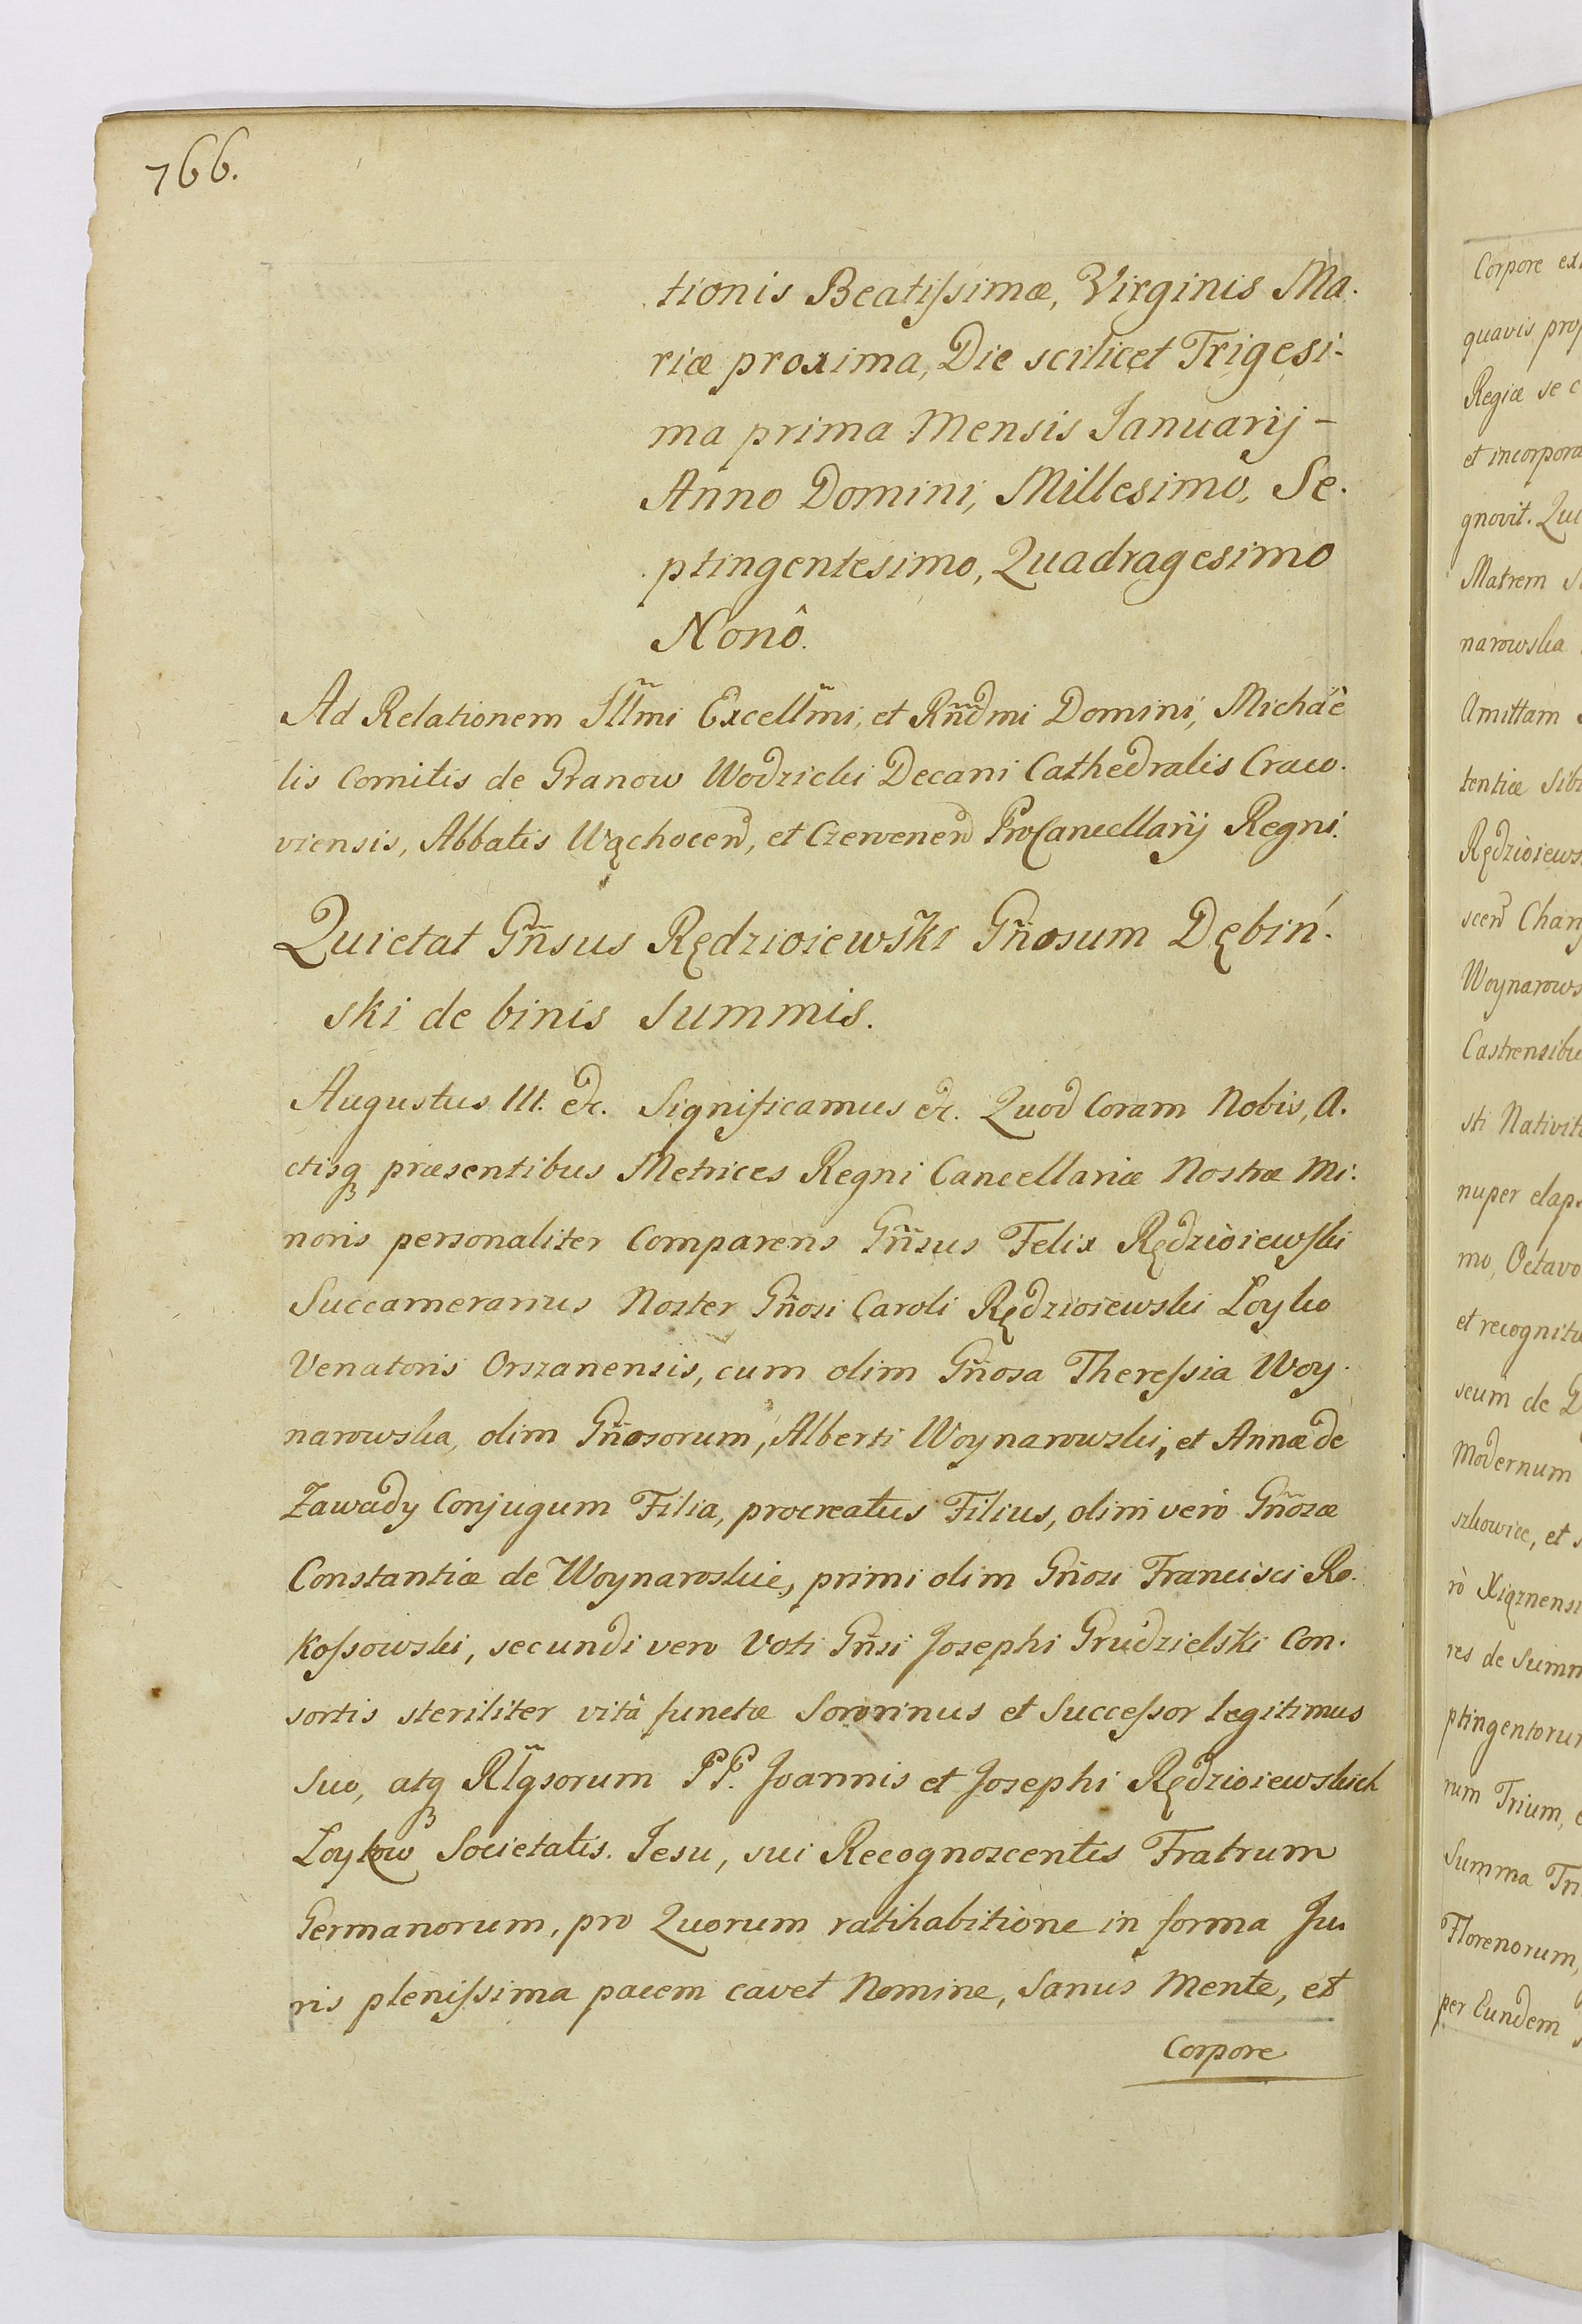 766.
tionis Beatissimæ, Virginis Ma-
riæ proxima, Die scilicet Trigesi-
ma prima Mensis Januarij -
Anno Domini, Millesimo, Se-
ptingentesimo, Quadragesimo
Nonô.
Ad Relationem Illm̃i Excellm̃i, et Rñdmi Domini, Michaë
lis Comitis de Granow Wodzicki Decani Cathedralis Craco-
viensis, Abbatis Wąchocen, et Czerwenen ProCancellarij Regni.
Quietat Gñsus Rędzioiewski Gñosum Dębiń-
ski de binis Summis.
Augustus III. &c. Significamus &c. Quod Coram Nobis, A-
ctisq præsentibus Metrices Regni Cancellariæ Nostræ Mi-
noris personaliter Comparens Gñsus Felix Rędzioiewski
Succameranus Noster Gñosi Caroli Rędzioiewski Loyko
Venatoris Orszanensis, cum olim Gñosa Theressia Woy-
narowska, olim Gñosorum, Alberti Woynarowski, et Annæ de
Zawady Conjugum Filia, procreatus Filius, olim verò Gñosæ
Constantiæ de Woynaroskie, primi olim Gñosi Francisci Ro-
kossowski, secundi vero Voti Gñsi Josephi Grudzielski Con-
sortis steriliter vitâ functæ Sororinus et Successor legitimus
suo, atq Rlgsorum PP. Joannis et Josephi Rędzioiewskich
Loykow Societatis Jesu, sui Recognoscentis Fratrum
Germanorum, pro Quorum ratihabitione in forma Ju-
ris plenissima pacem cavet Nomine, Sanus Mente, et
Corpore
Corpore
quavis
Regiæ se
et
gnovit.
Matrem
narowska
Amittam
tentiæ
scen
Castrensibu
sti
nuper
mo, Octavo
et
scum de
Modernum
et
rò
res de
ptingentorum
rum Trium,
Summa
Florenorum,
per Eundem